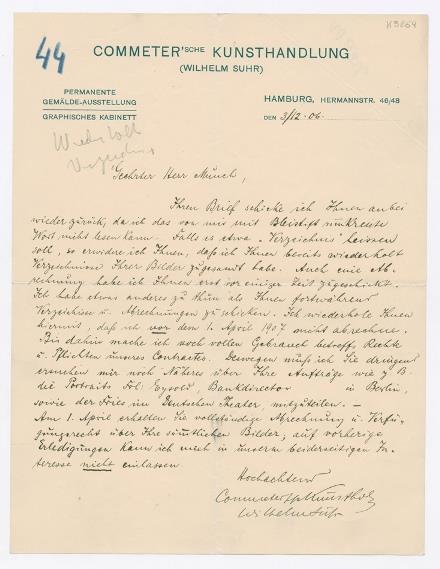 K3264
44
COMMETER'SCHE KUNSTHANDLUNG
(WILHELM SUHR)
PERMANENTE
GEMÄLDE-AUSSTELLUNG
GRAPHISCHES KABINETT
HAMBURG, HERMANNSTR. 46/48
DEN 3/12.06.
Geehrter Herr Munch,
Ihren Brief schicke ich Ihnen anbei
wieder zurück, da ich das von mir mit Bleistift umkreuzte
Wort nicht lesen kann. Falls es etwa „Verzeichnis" heissen
soll, so erwidre ich Ihnen, daß ich Ihnen bereits wiederholt
Verzeichnisse Ihrer Bilder zugesandt habe. Auch eine Ab-
rechnung habe ich Ihnen erst vor einiger Zeit zugeschickt.
Ich habe etwas anderes zu thun als Ihnen fortwährend
Verzeichnisse u. Abrechnungen zu schicken. Ich wiederhole Ihnen
hiermit, daß ich vor dem 1. April 1907 nicht abrechne.
Bis dahin mache ich noch vollen Gebrauch betreff. Rechte
u. Pflichten unseres Contractes. Deswegen muß ich Sie dringend
ersuchen mir noch Näheres über Ihre Aufträge wie z. B.
die Portraits Frl. Eysold, Bankdirector in Berlin,
sowie der Fries im Deutschen Theater, mitzuteilen. –
Am 1. April erhalten Sie vollständige Abrechnung u. Verfü-
gungsrecht über Ihre sämtlichen Bilder, auf vorherige
Erledigungen kann ich mich in unserm beiderseitigen In-
teresse nicht einlassen
Hochachtend
Commeter'sche Kunsthdlg
Wilhelm Suhr